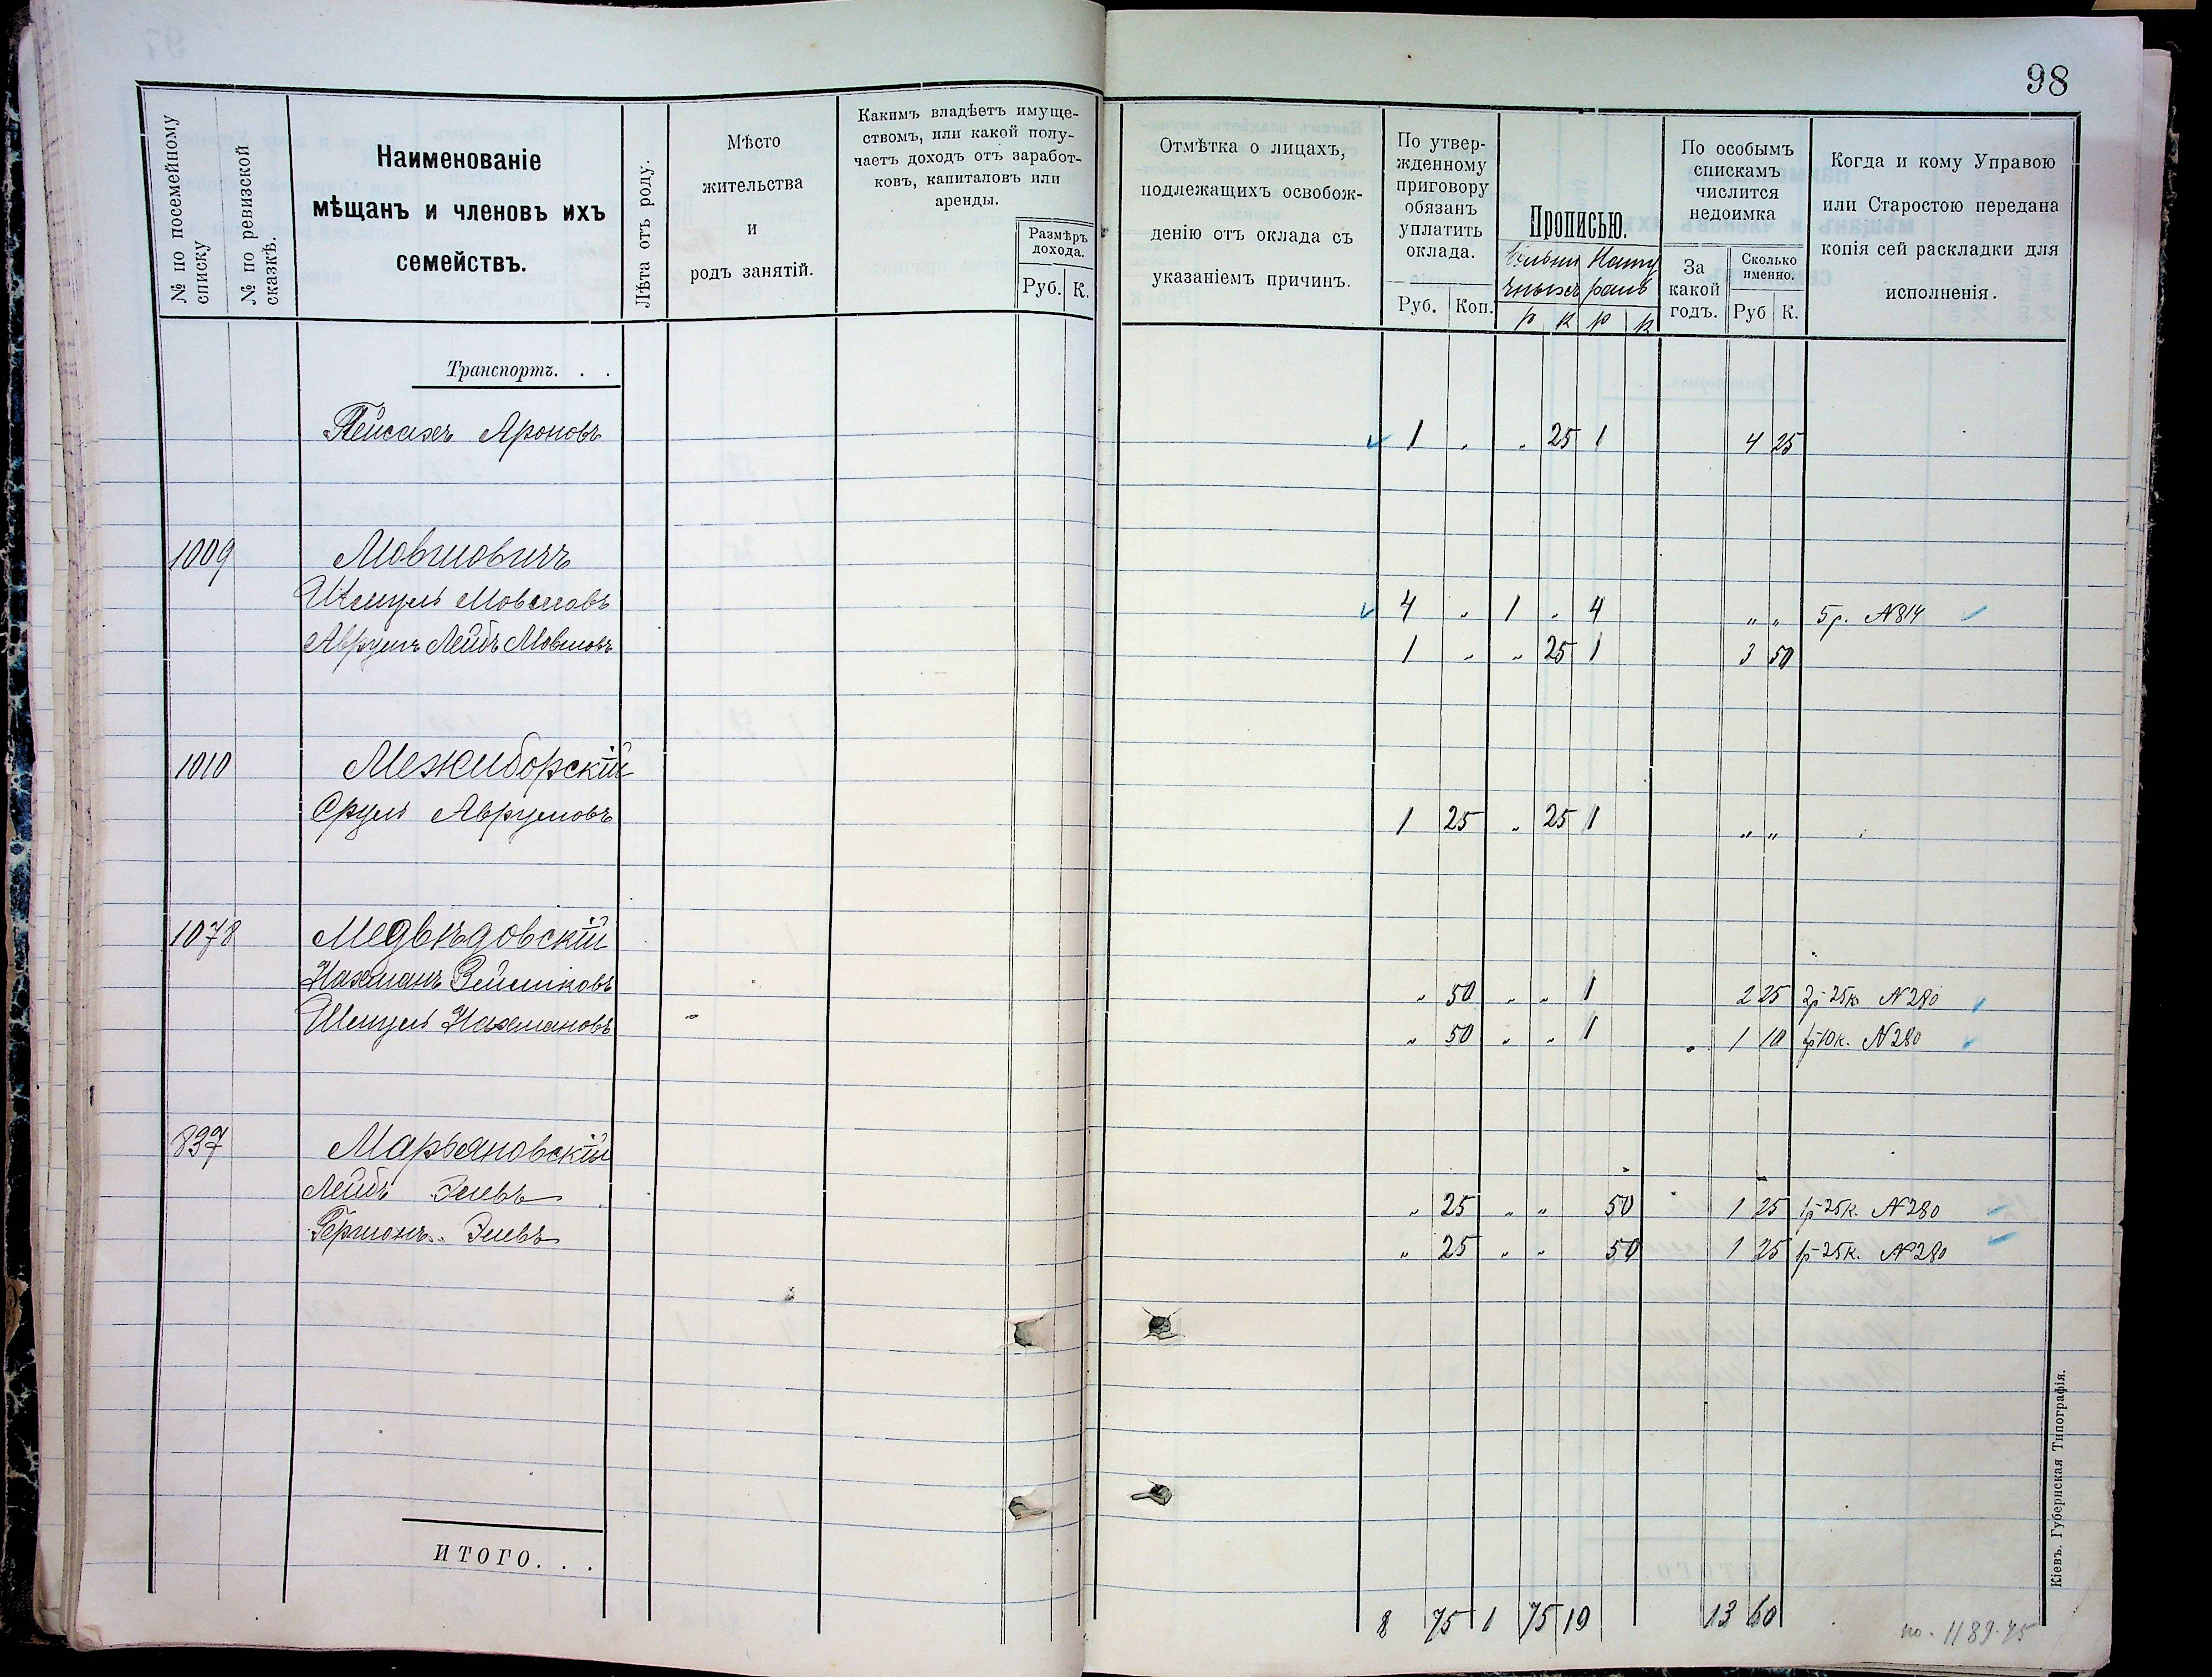 98
№ по посемейному списку
№ по ревизской сказкѣ.
Наименованіе
мѣщанъ и членовъ ихъ
семействъ.
Лѣта отъ роду.
Мѣсто
жительства
и
родъ занятій.
Какимъ владѣетъ имуще-
ствомъ, или какой полу-
чаетъ доходъ отъ заработ-
ковъ, капиталовъ или
аренды.
Размѣръ
дохода.
Руб. К.
Отмѣтка о лицахъ,
подлежащихъ освобож-
денію отъ оклада съ
указаніемъ причинъ.
По утвер-
жденному
приговору
обязанъ
уплатить
оклада.
Руб. Коп.
Прописью.
р к р к
По особымъ
спискамъ
числится
недоимка
За
какой
годъ.
Сколько
именно.
Руб К.
Когда и кому Управою
или Старостою передана
копія сей раскладки для
исполненія.
Транспортъ. . .
Пейсахъ Ароновъ 1 „ „ 25 1 4 25
1009 Мовшовичъ
Шмуль Мовшовъ 4 „ 1 „ 4 „ „ 5 р. N 814
Аврумъ Лейбъ Мовшовъ 1 „ „ 25 1 3 50
1010 Межиборскій
Сруль Аврумовъ 1 25 „ 25 1 „ „
1078 Медвѣдовскій
Нахманъ „ 50 „ „ 1 2 25 2р 25к N 280
Шмуль Нахмановъ „ 50 „ „ 1 1 10 1р 10к. N 280
837 Марьяновскій
Лейбъ Элевъ „ 25 „ „ 50 1 25 1р 25к. N 280
Гершонъ Элевъ „ 25 „ „ 50 1 25 1р 25к. N 280
ИТОГО. . .
8 75 1 75 10 13 60
1189.75
Кіевъ. Губернская Типографія.